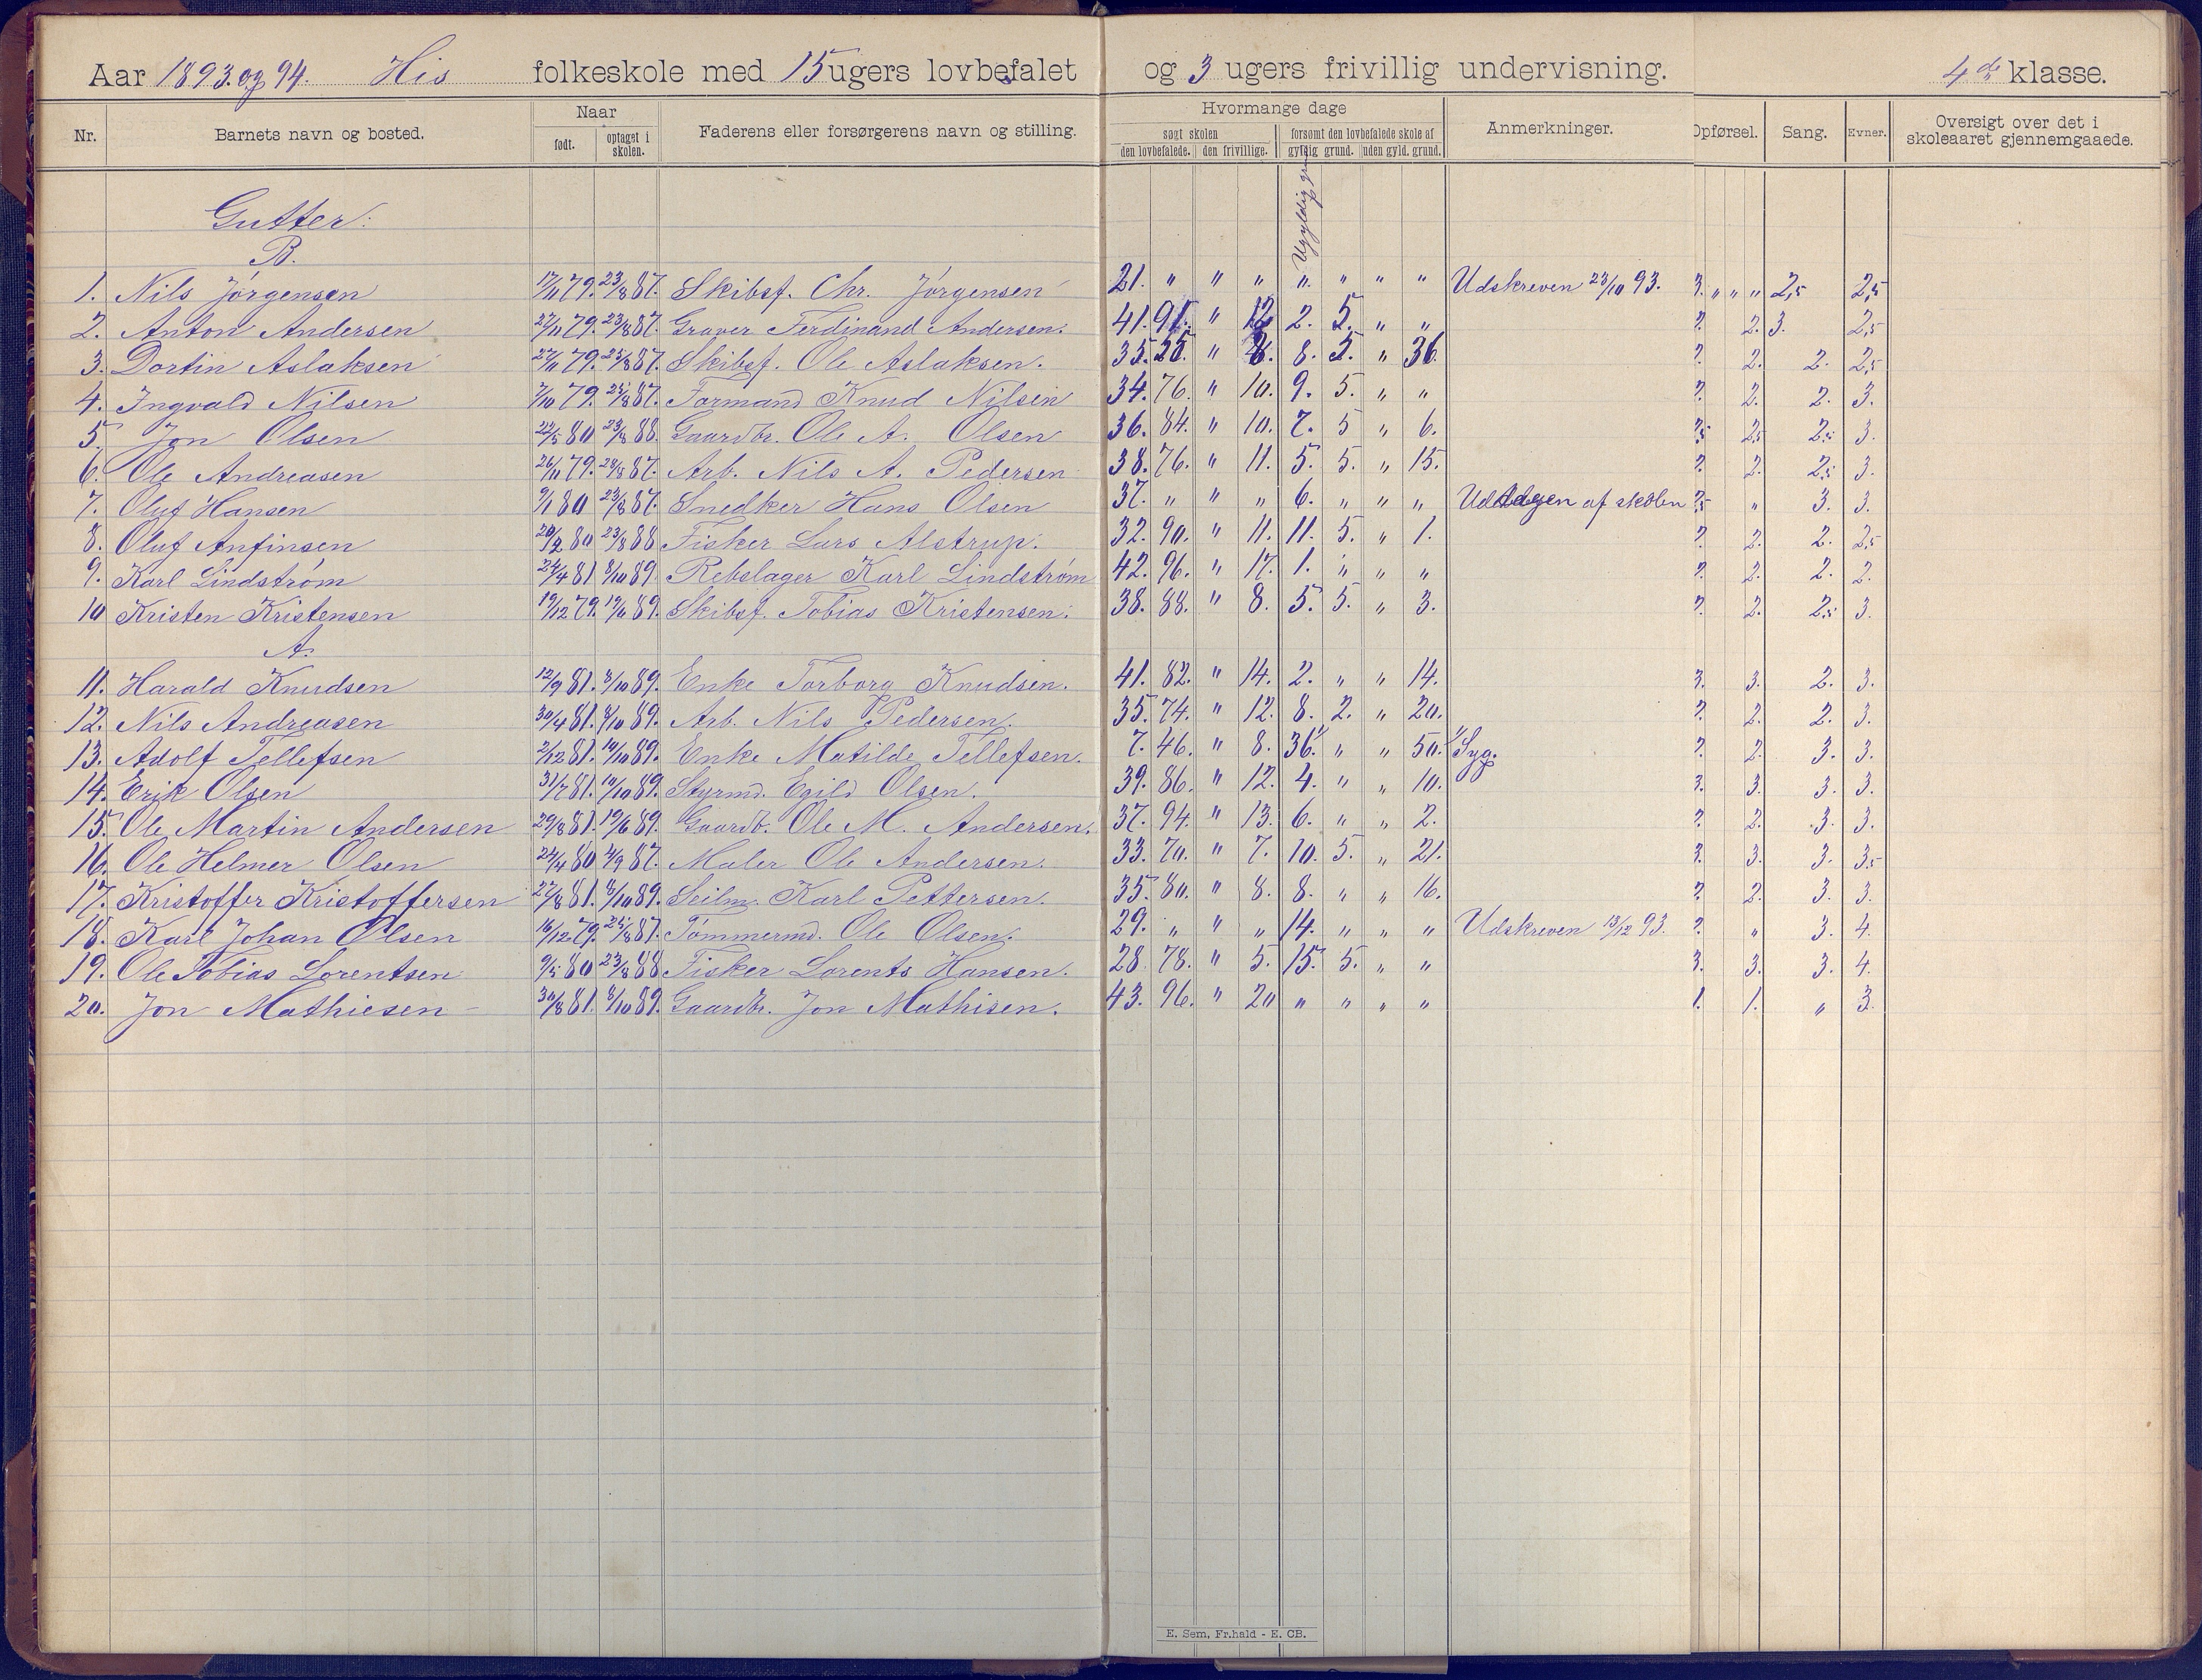 Aar 1893. og 94. His folkeskole med 15 ugers lovbefalet og 3 ugers frivillig undervisning. 4de klasse.
Nr. Barnets navn og bosted. Naar født. optaget i skolen. Faderens eller forsørgerens navn og stilling. Hvormange dage søgt skolen den lovbefalede. den frivillige. forsømt den lovbefalede skole af gyldig grund. uden gyld. grund. Anmerkninger. Opførsel. Sang. Evner. Oversigt over det i skoleaaret gjennemgaaede.
Gutter:
B.
1. Nils Jørgensen 17/11 79. 23/8 87. Skibsf. Chr. Jørgensen 21. " " " " " " " Udskreven 23/10 93. 3. " " " 2,5 2,5
2. Anton Andersen 27/11 79. 23/8 87. Graver Ferdinand Andersen. 41. 91. " 12 2. 5. " " 2. 3. 2,5
3. Dortin Aslaksen 27/11 79. 25/8 87. Skibsf. Ole Aslaksen. 35. 55. " 8. 5. " 36. 2. 2. 2,5
4. Ingvald Nilsen 7/10 79. 87. Formand Knud Nilsen 34. 76. " 10. 9. 5. " " 2. 2. 3.
5. Jon Olsen 22/5 80 23/8 88. Gaardbr. Ole A. Olsen 36. 84. " 10. 7. 5 " 6. 2,5 2,5 3.
6. Ole Andreasen 26/11 79. 87. Arb. Nils A. Pedersen 38. 76. " 11. 5. 5. " 15. 2. 2,5 3.
7. Oluf Hansen 9/1 80 23/8 87. Snedker Hans Olsen 37. " " " 6. " " " af skolen " 3. 3.
8. Oluf Anfinsen 20/2 80 23/8 88 Fisker Lars Alstrup. 32. 90. " 11. 11. 5. " 1. 2. 2. 2,5
9. Karl Lindstrøm 24/4 81. 8/10 89. Rebslager Karl Lindstrøm 42. 96. " 17. 1. " " " 2. 2. 2.
10 Kristen Kristensen 19/12 79. 89. Skibsf. Tobias Kristensen. 38. 88. " 8. 5. 5. " 3. 2. 2,5 3.
A.
11. Harald Knudsen 12/9 81. 8/10 89. Enke Torborg Knudsen. 41. 82. " 14. 2. " " 14. 3. 3. 2. 3.
12. Nils Andreasen 30/4 81. 8/10 89. Arb. Nils Pedersen. 35. 74. " 12. 8. 2. " 20. 2. 2. 3.
13. Adolf Tellefsen 2/12 81. 10/10 89. Enke Matilde Tellefsen. 7. 46. " 8. 36. " " 50. Syg. 2. 3. 3.
14. Erik Olsen 31/7 81. 10/10 89. Styrmd. Egild Olsen. 39. 86. " 12. 4. " " 10. 3. 3. 3. 3.
15. Ole Martin Andersen 29/8 81. 19/6 89. Gaardb. Ole M. Andersen. 37. 94. " 13. 6. " " 2. 2. 3. 3.
16. Ole Helmer Olsen 24/4 80 4/9 87. Maler Ole Andersen. 33. 70. " 7. 10. 5. " 21. 3. 3. 3. 3,5
17. Kristoffer Kristoffersen 27/8 81. 8/10 89. Seilm. Karl Pettersen. 35. 80. " 8. 8. " " 16. 2. 3. 3.
18. Karl Johan Olsen 16/12 79. 87. Tømmermd. Ole Olsen. 29. " " " 14. " " " Udskreven 13/12 93. " 3. 4.
19. Ole Tobias Lorentsen 9/5 80 23/8 88 Fisker Lorents Hansen. 28. 78. " 5. 15. 5. " " 3. 3. 3. 4.
20. Jon Mathiesen 30/8 81. 8/10 89. Gaardbr. Jon Mathisen. 43. 96. " 20 " " " " 1. 1. " 3.
E. Sem, Fr.hald - E. CB.